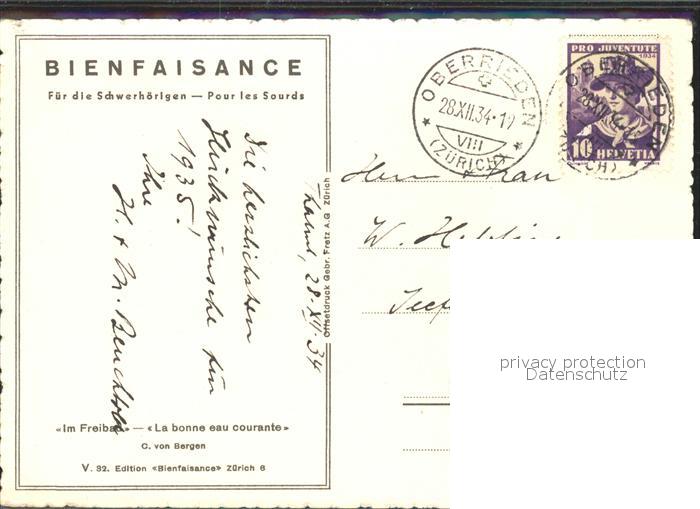 BIENFAISANCE
Für die Schwerhörigen — Pour les Sourds
28.XII.34
Die herzlichsten
Glückwünsche für
1935!
Ihre
H. & M.
«Im Freibad» — «La bonne eau courante»
C. von Bergen
V. 32. Edition «Bienfaisance» Zürich 6
Offsetdruck Gebr. Fretz A.G. Zürich
OBERRIEDEN
28.XII.34-19
VIII
(ZÜRICH)
PRO JUVENTUTE
1934
10 HELVETIA
OBERRIEDEN
28.XII
Herr & Frau
W.
privacy protection
Datenschutz